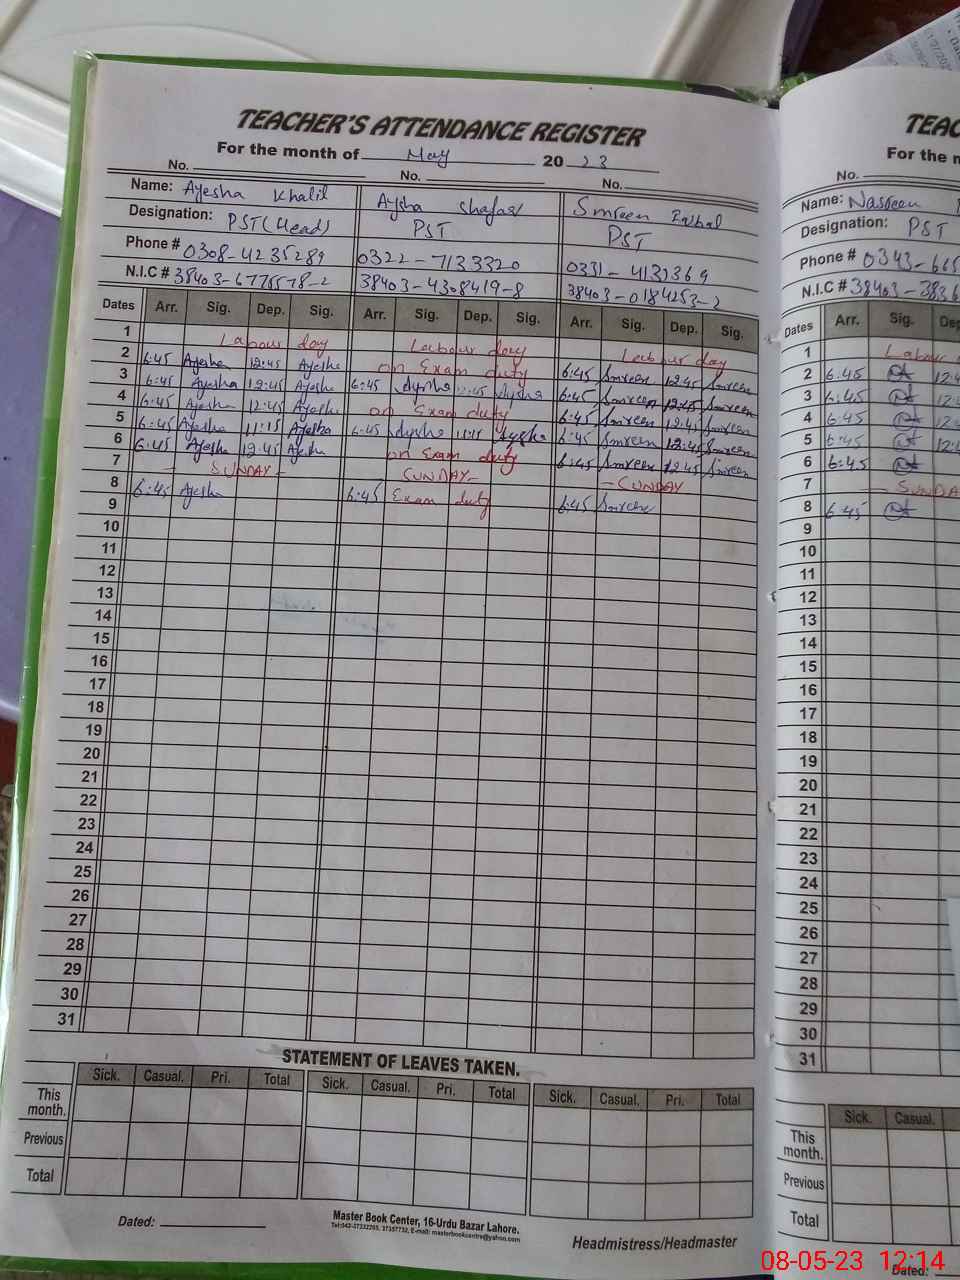 TEACHER'S ATTENDANCE REGISTER
For the month of May 20 23
No. No. No.
Name: Ayesha Khalil Aysha Smreen
Designation: PST (Head) PST PST
Phone # 0308-4235289 0322-7133320 0331-4132369
N.I.C # 38403-6776578-2 38403-4308419-8 38403-0184253-2
Dates Arr. Sig. Dep. Sig. Arr. Sig. Dep. Sig. Arr. Sig. Dep. Sig.
1 Labour day Labour day Labour day
2 6:45 Ayesha 12:45 Ayesha on Exam duty 6:45 Smreen 12:45 Smreen
3 6:45 Ayesha 12:45 Ayesha 6:45 Aysha 12:45 Aysha 6:45 Smreen 12:45 Smreen
4 6:45 Ayesha 12:45 Ayesha on Exam duty 6:45 Smreen 12:45 Smreen
5 6:45 Ayesha 11:15 Ayesha 6:45 Aysha 11:15 Aysha 6:45 Smreen 12:45 Smreen
6 6:45 Ayesha 12:45 Ayesha on Exam duty 6:45 Smreen 12:45 Smreen
7 - SUNDAY - SUNDAY - - SUNDAY
8 6:45 Ayesha 6:45 Exam duty 6:45 Smreen
9
10
11
12
13
14
15
16
17
18
19
20
21
22
23
24
25
26
27
28
29
30
31
STATEMENT OF LEAVES TAKEN.
Sick. Casual. Pri. Total Sick. Casual. Pri. Total Sick. Casual. Pri. Total
This month.
Previous
Total
Dated:
Master Book Center, 16-Urdu Bazar Lahore.
Tel:042-37232205, 37357732, E-mail: masterbookcentre@yahoo.com
Headmistress/Headmaster
TEAC
For the n
No.
Name: Nasreen
Designation: PST
Phone # 0343-665
N.I.C # 38403-3836
Dates Arr. Sig. De
1 Labour
2 6:45 12:4
3 6:45 12:4
4 6:45 12:4
5 6:45 12:4
6 6:45
7 SUNDA
8 6:45
9
10
11
12
13
14
15
16
17
18
19
20
21
22
23
24
25
26
27
28
29
30
31
Sick. Casual.
This month.
Previous
Total
Dated:
08-05-23 12:14